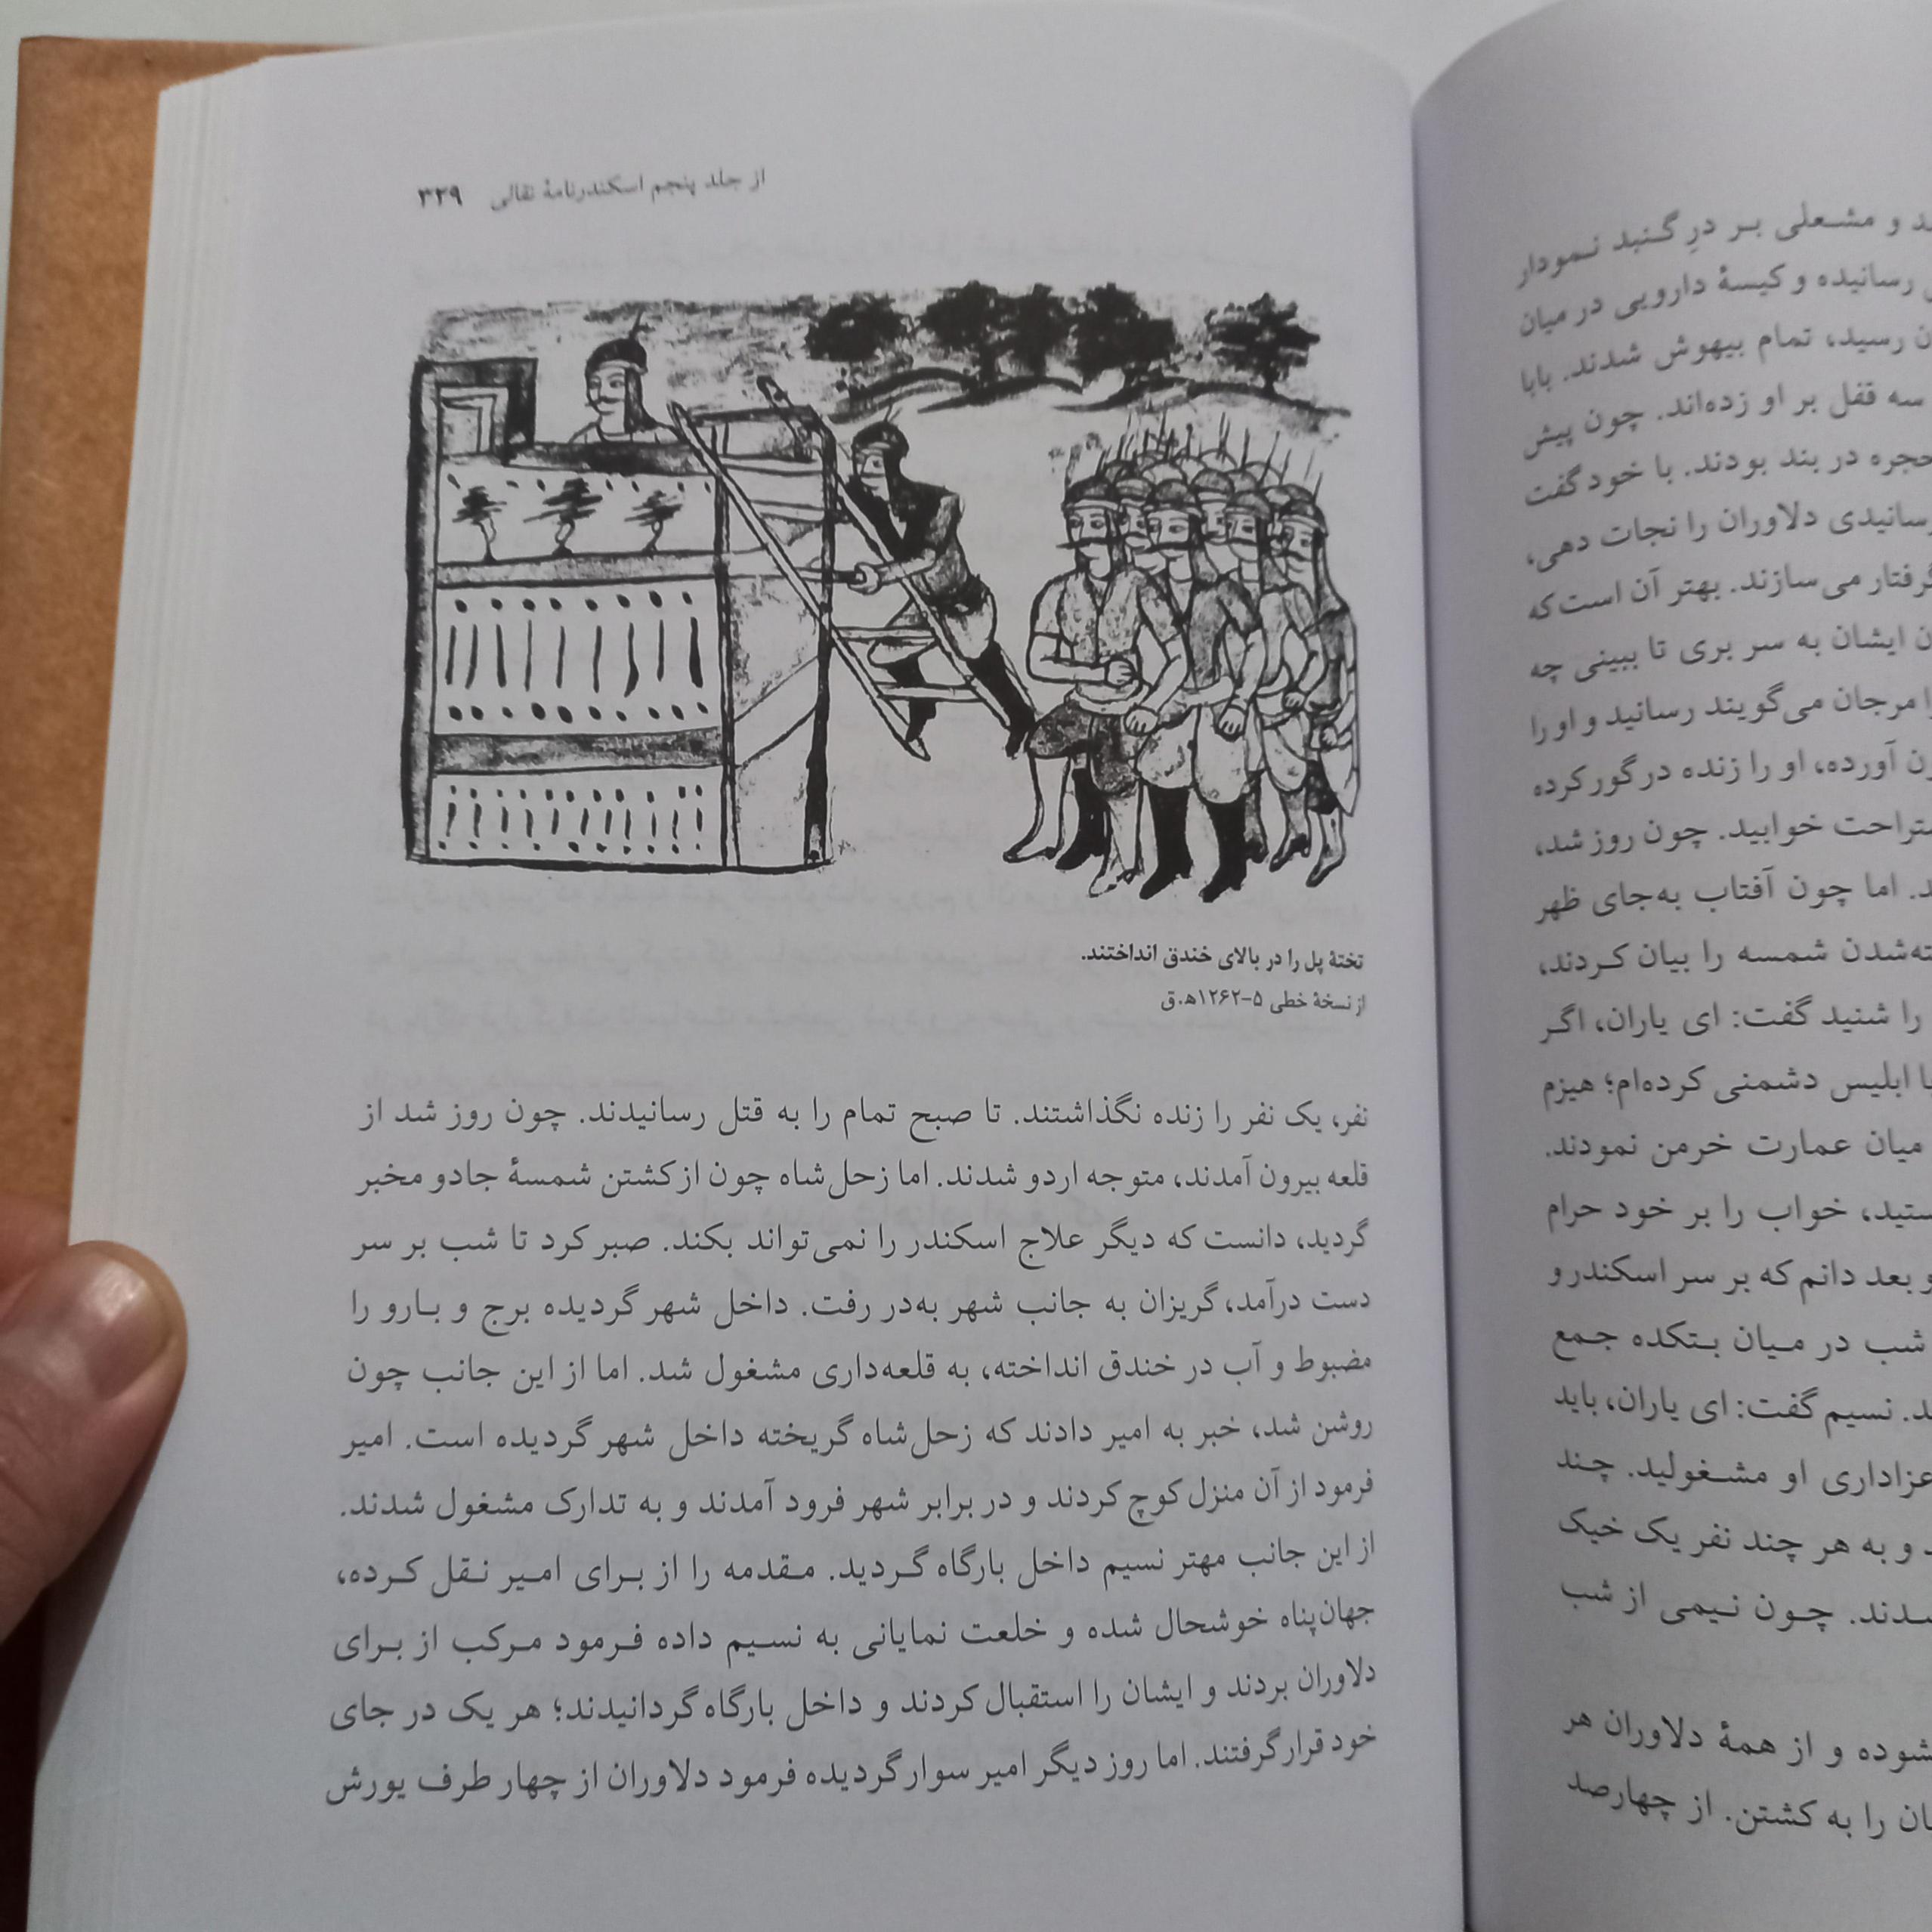 د و مشعلی بر درِ گنبد نمودار
رسانیده و کیسهٔ دارویی در میان
ن رسید، تمام بیهوش شدند. بابا
سه قفل بر او زده‌اند. چون پیش
حجره در بند بودند. با خود گفت
رسانیدی دلاوران را نجات دهی،
گرفتار می‌سازند. بهتر آن است که
ن ایشان به سر بری تا ببینی چه
ا مرجان می‌گویند رسانید و او را
ن آورده، او را زنده در گور کرده
ستراحت خوابید. چون روز شد،
د. اما چون آفتاب به‌جای ظهر
ته‌شدن شمسه را بیان کردند،
را شنید گفت: ای یاران، اگر
ا ابلیس دشمنی کرده‌ام؛ هیزم
میان عمارت خرمن نمودند.
ستید، خواب را بر خود حرام
و بعد دانم که بر سر اسکندر و
شب در میان بتکده جمع
د. نسیم گفت: ای یاران، باید
عزاداری او مشغولید. چند
د و به هر چند نفر یک خیک
دند. چون نیمی از شب
شوده و از همهٔ دلاوران هر
ان را به کشتن. از چهارصد
از جلد پنجم اسکندرنامهٔ نقالی ۳۲۹
تختهٔ پل را در بالای خندق انداختند.
از نسخهٔ خطی ۵-۱۲۶۲ه‍.ق
نفر، یک نفر را زنده نگذاشتند. تا صبح تمام را به قتل رسانیدند. چون روز شد از
قلعه بیرون آمدند، متوجه اردو شدند. اما زحل‌شاه چون از کشتن شمسهٔ جادو مخبر
گردید، دانست که دیگر علاج اسکندر را نمی‌تواند بکند. صبر کرد تا شب بر سر
دست درآمد، گریزان به جانب شهر به‌در رفت. داخل شهر گردیده برج و بارو را
مضبوط و آب در خندق انداخته، به قلعه‌داری مشغول شد. اما از این جانب چون
روشن شد، خبر به امیر دادند که زحل‌شاه گریخته داخل شهر گردیده است. امیر
فرمود از آن منزل کوچ کردند و در برابر شهر فرود آمدند و به تدارک مشغول شدند.
از این جانب مهتر نسیم داخل بارگاه گردید. مقدمه را از برای امیر نقل کرده،
جهان‌پناه خوشحال شده و خلعت نمایانی به نسیم داده فرمود مرکب از برای
دلاوران بردند و ایشان را استقبال کردند و داخل بارگاه گردانیدند؛ هر یک در جای
خود قرار گرفتند. اما روز دیگر امیر سوار گردیده فرمود دلاوران از چهار طرف یورش